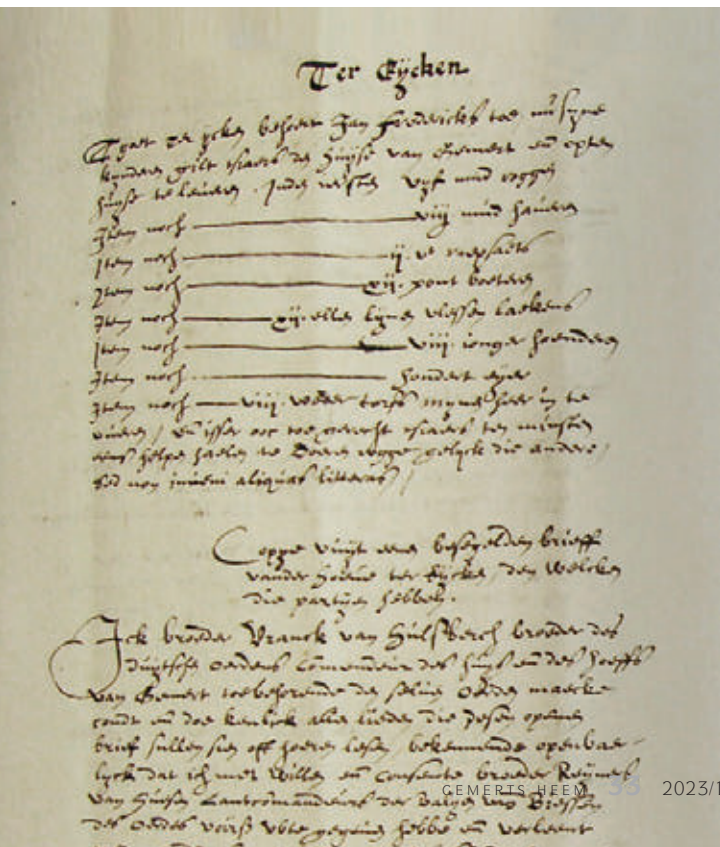 Ter Eycken
Tgoet ter eycken behoert Jan Frederickx toe mit syne
kynderen gilt tsiaers den huyse van Gemert en opten
huyse te leveren. Inden iersten vyf mud roggen
Item noch viij mud haveren
Item noch ij vt raepsaets
Item noch xij pont boeteren
Item noch xij ellen lynen vlessen laekens
Item noch viij ionger hoenderen
Item noch hondert eyer
Item noch viij voeder torfs myne heer in te
vueren / en isser oec toe gerecht tsiaers ten minsten
eens helpe haelen te gelyck die andere /
sed non inveni aliquas litteras /
Coppe vuyt eene besegelden brieff
vander hoeve ter Eycken, den welcken
die partyen hebben.
Ick broeder Vranck van Hulsberch broeder des
duytsche oerdens Commendeur des huys en des hoeffs
van Gemert toebehorende den selven oerden maecke
condt en doe kenlick allen lieden die desen openen
brief sullen sien off hoeren lesen / bekennende openbaer-
lyck dat ich met willen en consente broeder Reyners
van Husen Lantcommandeurs der balyen van Biessen
des oerdes vuyt gegeven hebbe en verleent
GEMERTS HEEM 33 2023/1